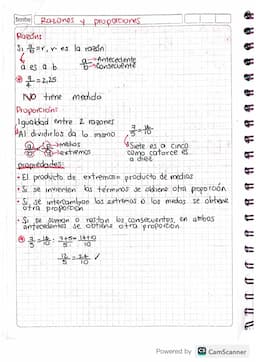 Razones y proporciones
Razón:
Si a/b = r, r es la razón
a es a b a/b → Antecedente → Consecuente
9/4 = 2,25
NO tiene medida
Proporción:
Igualdad entre 2 razones
Al dividirlos da lo mismo 7/5 = 14/10
medios
extremos
Siete es a cinco como catorce es a diez
propiedades:
• El producto de extremos = producto de medios
• Si se invierten los términos se obtiene otra proporción
• Si se intercambian los extremos o los medios se obtiene
otra proporción
• Si se suman o restan los consecuentes, en ambos
antecedentes se obtiene otra proporción
7/5 = 14/10 7+5/5 = 14+10/10
12/5 = 24/10 ✓
Powered by CS CamScanner